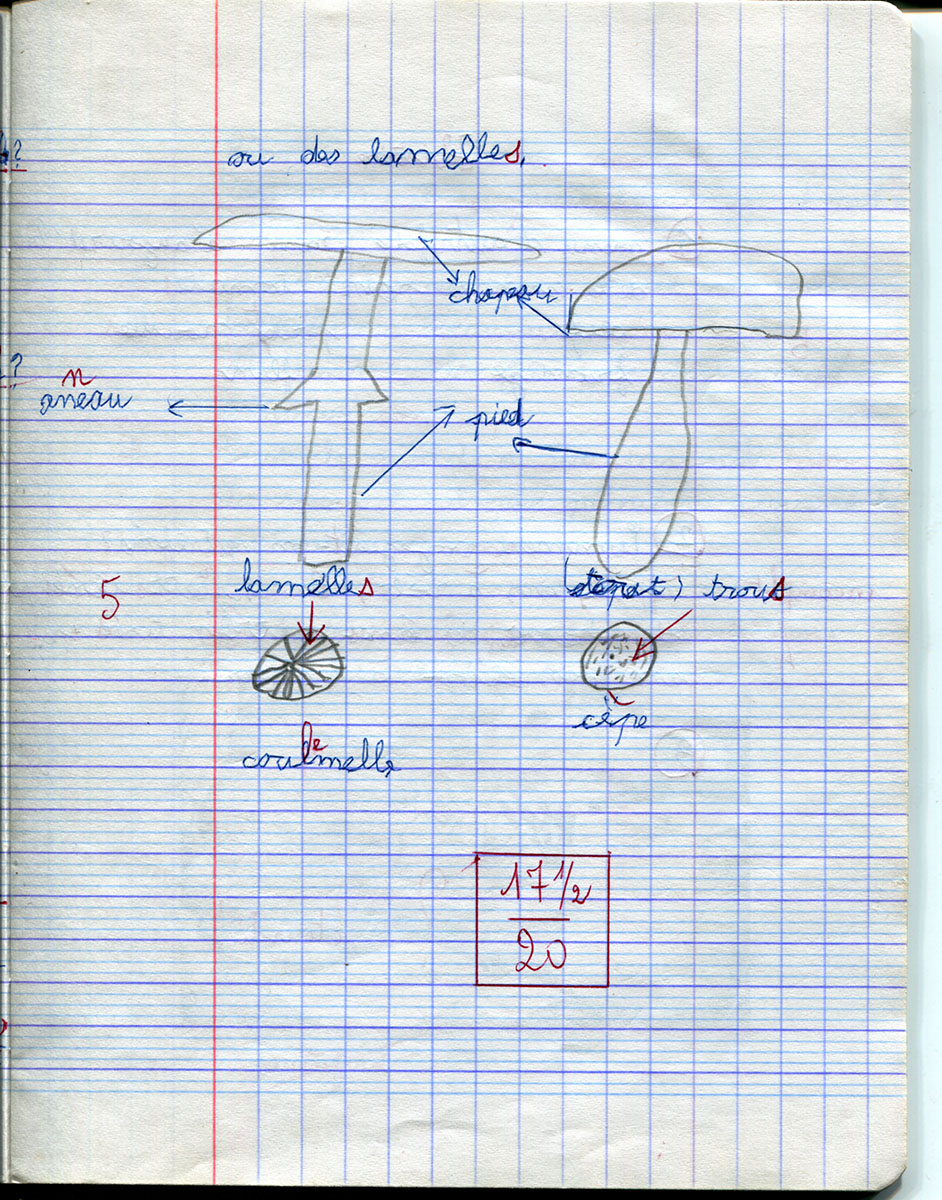 ?
ou des lamelles.
chapeau
?
n
aneau
pied
5
lamelles
trous
cèpe
e
coulmelle
17 ½
20